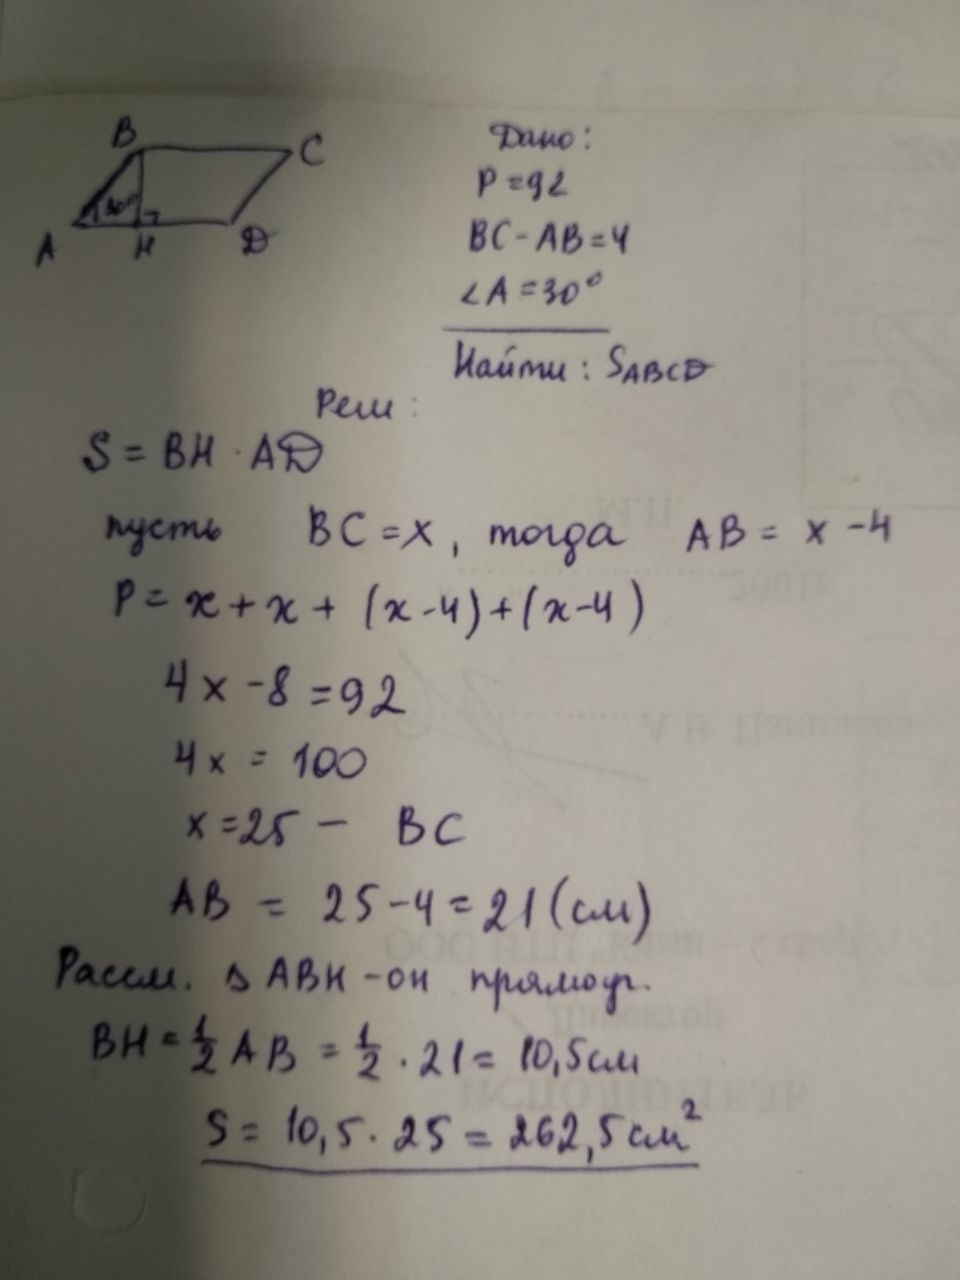 B
C
30°
A
H
D
Дано:
P=92
BC-AB=4
∠A=30°
Найти: SABCD
Реш:
S = BH · AD
пусть BC=x, тогда AB = x-4
P= x+x+(x-4)+(x-4)
4x-8=92
4x = 100
x=25 - BC
AB = 25-4=21(см)
Рассм. △ ABH-он прямоуг.
BH=1/2 AB = 1/2 · 21= 10,5см
S= 10,5·25=262,5см²